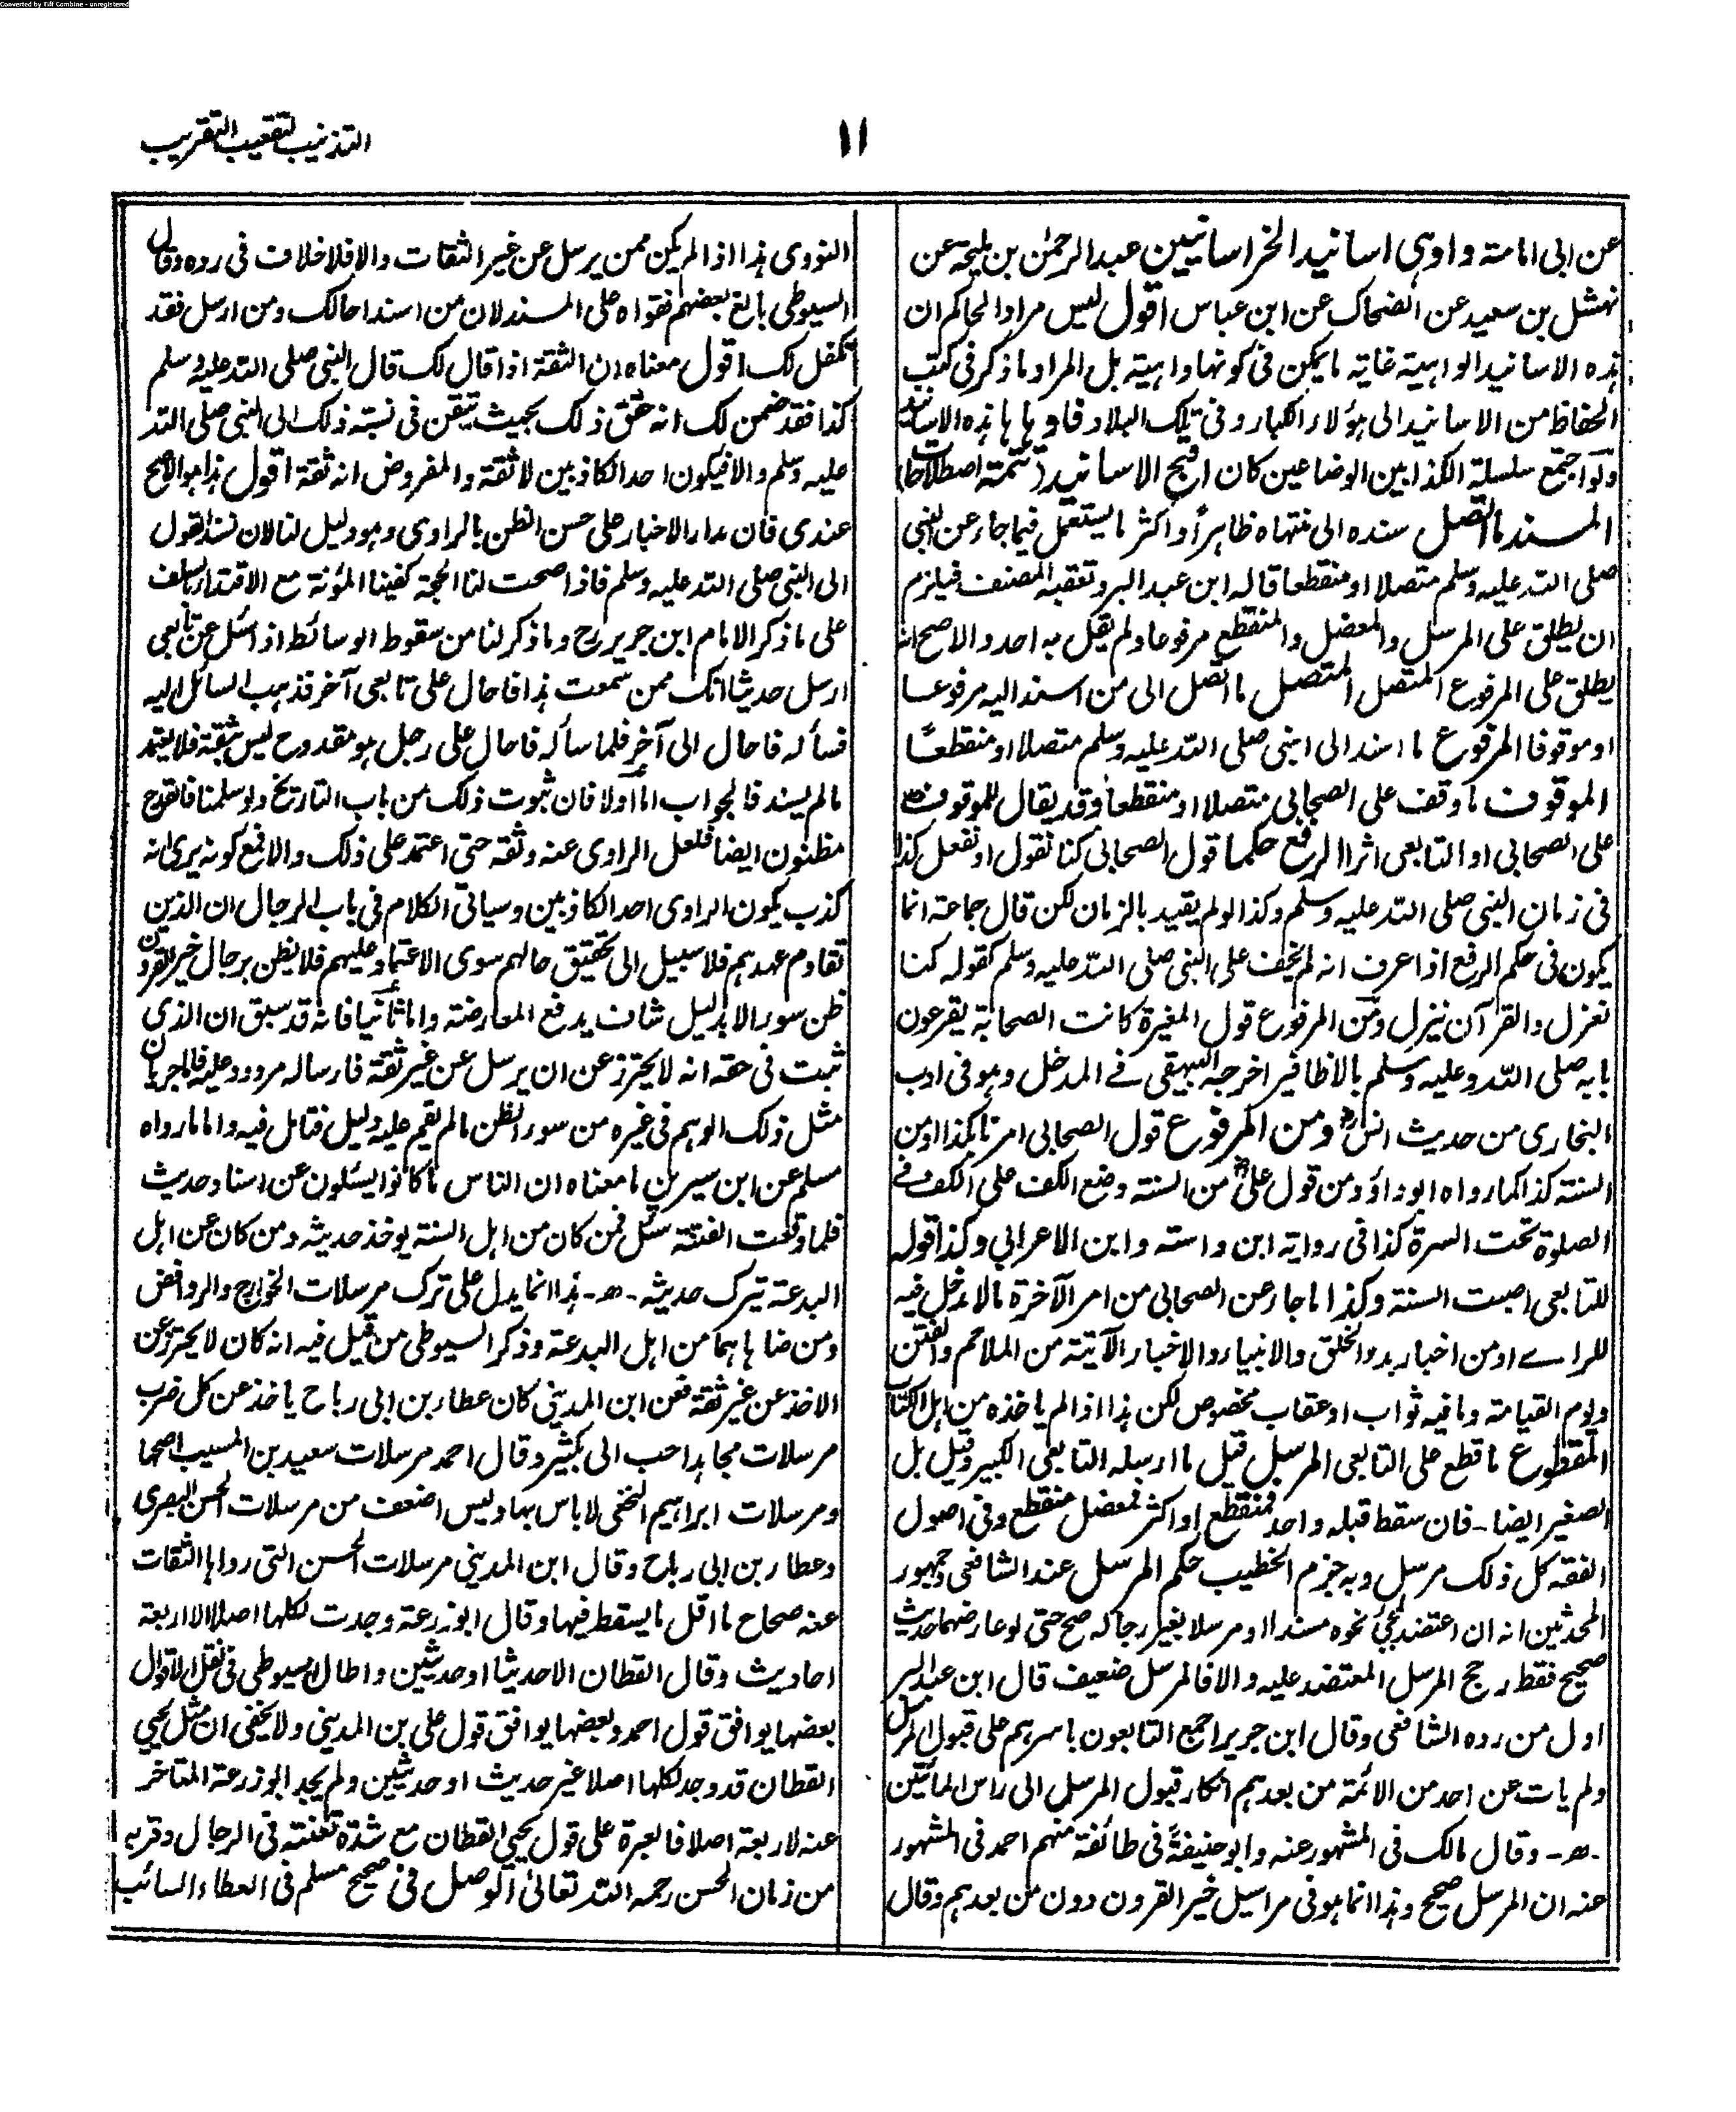 Converted by Tiff Combine - unregistered
التذنيب لتعقيب التقريب
۱۱
عن ابى امامة واوهى اسانيد الخراسانيين عبد الرحمٰن بن مليحة عن
نهشل بن سعيد عن الضحاك عن ابن عباس اقول ليس مراد الحاكم ان
هذه الاسانيد الواهية غاية ما يمكن فى كونها واهية بل المراد ما ذكر فى كتب
الحفاظ من الاسانيد الى هؤلاء الكبار وفى تلك البلاد فاوهاها هذه الاسانيد
ولو اجتمع سلسلة الكذابين الوضاعين كان اقبح الاسانيد (تتمة اصطلاحات)
المسند ما اتصل سنده الى منتهاه ظاهراً واكثر ما يستعمل فيما جاء عن النبى
صلى الله عليه وسلم متصلا او منقطعا قاله ابن عبد البر وتعقبه المصنف فيلزم
ان يطلق على المرسل والمعضل والمنقطع مرفوعا ولم يقل به احد والاصح انه
يطلق على المرفوع المتصل المتصل ما اتصل الى من اسند اليه مرفوعا
او موقوفا المرفوع ما اسند الى النبى صلى الله عليه وسلم متصلا او منقطعًا
الموقوف ما وقف على الصحابى متصلا او منقطعا وقد يقال للموقوف
على الصحابى او التابعى اثرا الرفع حكما قول الصحابى كنا نقول او نفعل كذا
فى زمان النبى صلى الله عليه وسلم وكذا لو لم يقيد بالزمان لكن قال جماعة انما
يكون فى حكم الرفع اذا عرف انه لم يخف على النبى صلى الله عليه وسلم كقوله كنا
نعزل والقرآن ينزل ومن المرفوع قول المغيرة كانت الصحابة يقرعون
بابه صلى الله وعليه وسلم بالاظافير اخرجه البيهقى فے المدخل وهو فى ادب
البخارى من حديث انسؓ ومن المرفوع قول الصحابى امرنا بكذا او من
السنة كذا كما رواه ابو داؤد من قول علىؓ من السنة وضع الكف على الكف فے
الصلوة تحت السرة كذا فى رواية ابن داسته وابن الاعرابى وكذا قوله
للتابعى اصبت السنة وكذا ما جاء عن الصحابى من امر الآخرة ما لا دخل فيه
للراے او من اخبار بدو الخلق والانبياء والاخبار الآتية من الملاحم والفتن
ويوم القيامة وما فيه ثواب او عقاب مخصوص لكن هذا اذا لم ياخذه من اهل الكتاب
المقطوع ما قطع على التابعى المرسل قيل ما ارسله التابعى الكبير وقيل بل
الصغير ايضا - فان سقط قبله واحد فمنقطع او اكثر فمعضل منقطع وفى اصول
الفقه كل ذلك مرسل وبه جزم الخطيب حكم المرسل عند الشافعى وجمهور
المحدثين انه ان اعتضد بمجئ نحوه مسندا او مرسلا بغير رجاله صح حتى لو عارضهما حديث
صحيح فقط رجح المرسل المعتضد عليه والا فالمرسل ضعيف قال ابن عبد البر
اول من رده الشافعى وقال ابن جرير اجمع التابعون باسرهم على قبول المرسل
ولم يات عن احد من الائمة من بعدهم انكار قبول المرسل الى راس المائتين
- ھ - وقال مالك فى المشهور عنه وابو حنيفة فى طائفة منهم احمد فى المشهور
عنه ان المرسل صحيح وهذا انما هو فى مراسيل خير القرون دون من بعدهم وقال
النووى هذا اذا لم يكن ممن يرسل عن غير الثقات والا فلا خلاف فى رده وقال
السيوطى بالغ بعضهم فقواه على المسند لان من اسند احالك ومن ارسل فقد
تكفل لك اقول معناه ان الثقة اذا قال لك قال النبى صلى الله عليه وسلم
كذا فقد ضمن لك انه حقق ذلك بحيث تيقن فى نسبة ذلك الى النبى صلى الله
عليه وسلم والا فيكون احد الكاذبين لا ثقة والمفروض انه ثقة اقول هذا هو الاصح
عندى فان مدار الاخبار على حسن الظن بالراوى وهو دليل لنا لان نسند القول
الى النبى صلى الله عليه وسلم فاذا صحت لنا الحجة كفينا المؤنة مع الاقتداء بالسلف
على ما ذكر الامام ابن جرير رح وما ذكر لنا من سقوط الوسائط اذا سئل عن تابعى
ارسل حديثا انك ممن سمعت هذا فاحال على تابعى آخر فذهب السائل اليه
فسأله فاحال الى آخر فلما سأله فاحال على رجل هو مقدوح ليس بثقة فلا يعتمد
ما لم يسند فالجواب اما اولا فان ثبوت ذلك من باب التاريخ ولو سلمنا فالقدح
مظنون ايضا فلعل الراوى عنه وثقه حتى اعتمد على ذلك والا فمع كونه يرى انه
كذب يكون الراوى احد الكاذبين وسياتى الكلام فى باب الرجال ان الذين
تقادم عهدهم فلا سبيل الى تحقيق حالهم سوى الاعتماد عليهم فلا يظن برجال خير القرون
ظن سوء الا بدليل شاف يدفع المعارضة واما ثانيا فانه قد سبق ان الذى
ثبت فى حقه انه لا يحترز عن ان يرسل عن غير ثقة فارساله مردود عليه فاجريان
مثل ذلك الوهم فى غيره من سوء الظن ما لم يقم عليه دليل فتامل فيه واما ما رواه
مسلم عن ابن سيرين ما معناه ان الناس ما كانوا يسئلون عن اسناد حديث
فلما وقعت الفتنة سئل فمن كان من اهل السنة يوخذ حديثه ومن كان عن اهل
البدعة تيرك حديثه - ھ - هذا انما يدل على ترك مرسلات الخوارج والروافض
ومن ضاهاهما من اهل البدعة وذكر السيوطى من قيل فيه انه كان لا يحترز عن
الاخذ عن غير ثقة فعن ابن المدينى كان عطاء بن ابى رباح ياخذ عن كل ضرب
مرسلات مجاهد احب الى بكثير وقال احمد مرسلات سعيد بن المسيب اصحها
ومرسلات ابراهيم النخعى لا باس بها وليس اضعف من مرسلات الحسن البصرى
وعطاء بن ابى رباح وقال ابن المدينى مرسلات الحسن التى رواها الثقات
عنه صحاح ما اقل ما يسقط فيها وقال ابو زرعة وجدت لكلها اصلا الا اربعة
احاديث وقال القطان الا حديثا او حديثين واطال السيوطى فى نقل الاقوال
بعضها يوافق قول احمد وبعضها يوافق قول على بن المدينى ولا يخفى ان مثل يحيى
القطان قد وجد لكلها اصلا غير حديث او حديثين ولم يجد ابو زرعة المتاخر
عنه لاربعة اصلا فالعبرة على قول يحيى القطان مع شدة تعنته فى الرجال وقربه
من زمان الحسن رحمه الله تعالىٰ الوصل فى صحيح مسلم فى العطاء السائب